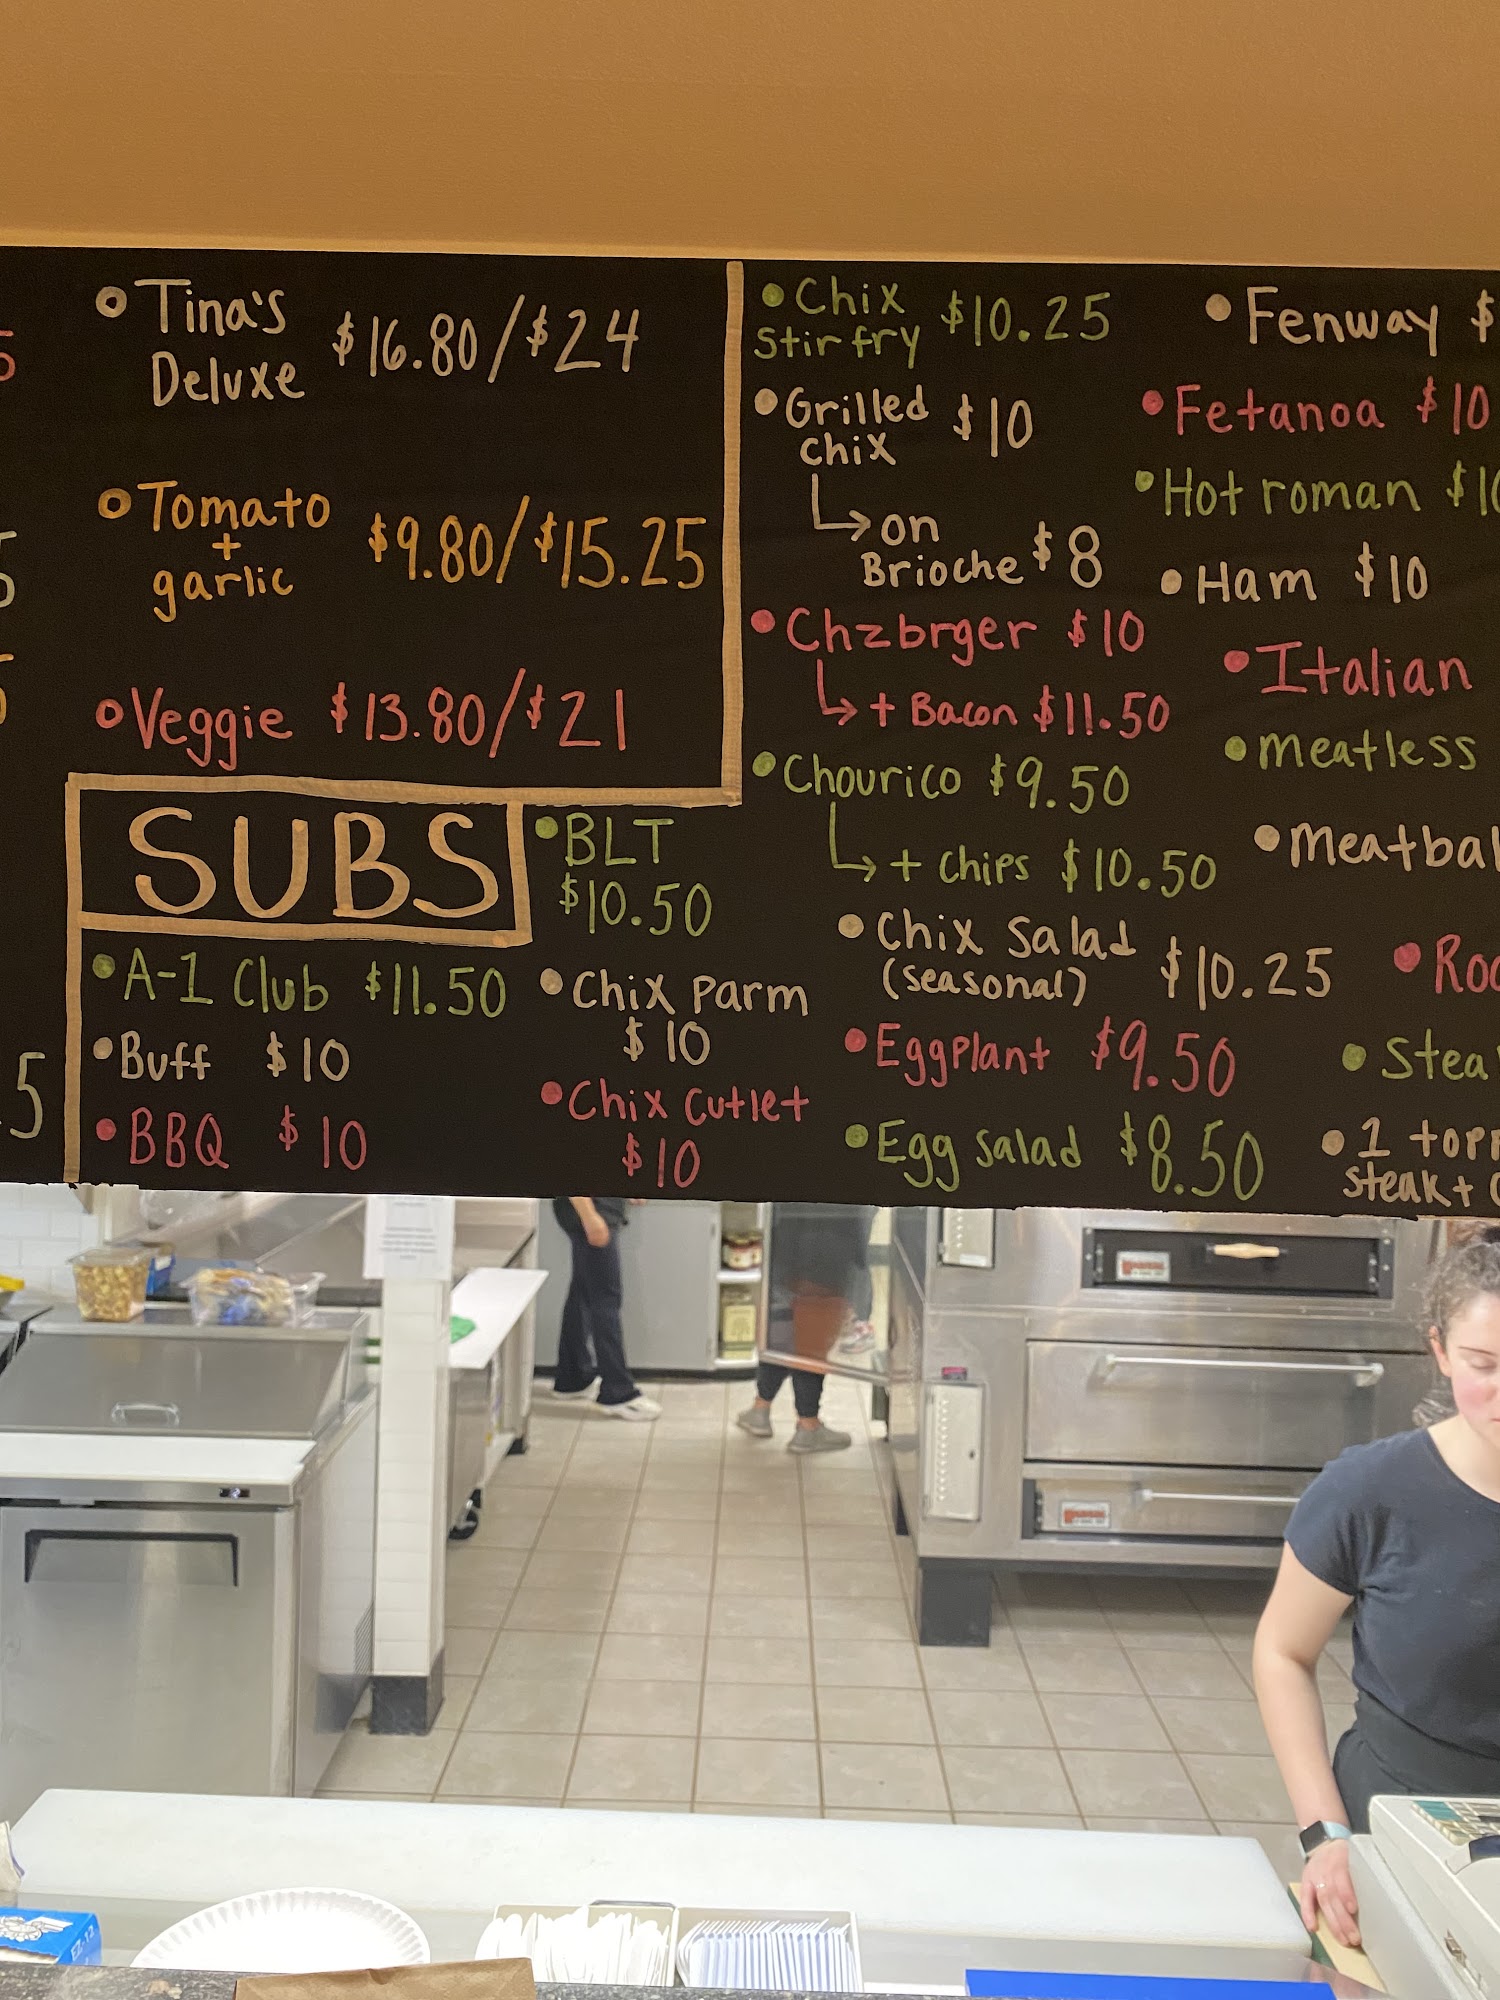 Tina's $16.80/$24
Deluxe
Tomato
+ $9.80/$15.25
garlic
Veggie $13.80/$21
SUBS
A-1 Club $11.50
Buff $10
BBQ $10
BLT
$10.50
Chix Parm
$10
Chix Cutlet
$10
Chix $10.25
Stir fry
Grilled $10
Chix
on
Brioche $8
Chzbrger $10
+ Bacon $11.50
Chourico $9.50
+ Chips $10.50
Chix Salad $10.25
(seasonal)
Eggplant $9.50
Egg Salad $8.50
Fenway $
Fetanoa $10
Hot roman
Ham $10
Italian
Meatless
1
steak +